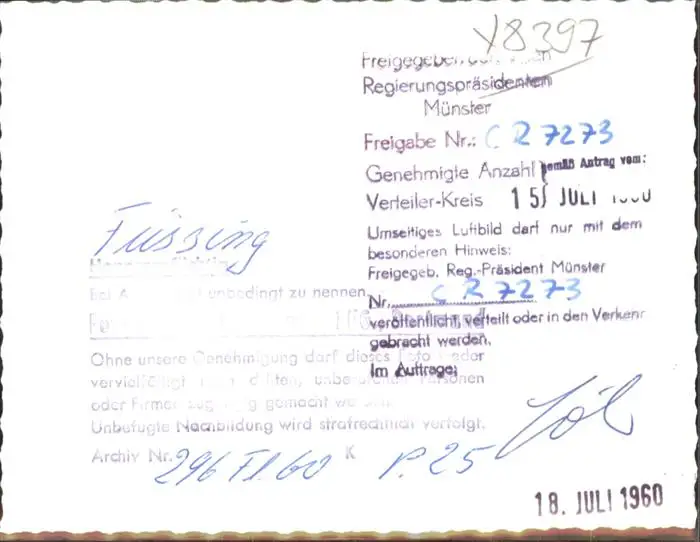 Y8397
Freigegeben
Regierungspräsidenten
Münster
Freigabe Nr.: CR 7273
Genehmigte Anzahl } gemäß Antrag vom:
Verteiler-Kreis 15. JULI 1960
Umseitiges Luftbild darf nur mit dem
besonderen Hinweis:
Freigegeb. Reg.-Präsident Münster
Nr. CR 7273
veröffentlicht, verteilt oder in den Verkehr
gebracht werden.
Im Auftrage:
Füssing
Bei unbedingt zu nennen.
Ohne unsere Genehmigung darf dieses Foto weder
vervielfältigt unbefugten Personen
oder Firmen zugängig gemacht werden.
Unbefugte Nachbildung wird strafrechtlich verfolgt.
Archiv Nr. 296 Fl. 60 K P. 25
18. JULI 1960